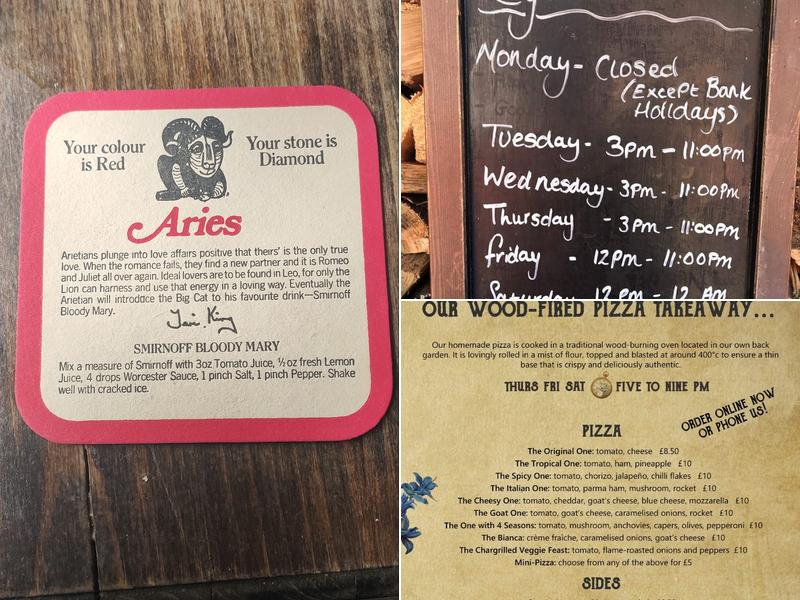 Your colour
is Red
Your stone is
Diamond
Aries
Arietians plunge into love affairs positive that theirs' is the only true
love. When the romance fails, they find a new partner and it is Romeo
and Juliet all over again. Ideal lovers are to be found in Leo, for only the
Lion can harness and use that energy in a loving way. Eventually the
Arietian will introdcce the Big Cat to his favourite drink—Smirnoff
Bloody Mary.
SMIRNOFF BLOODY MARY
Mix a measure of Smirnoff with 3oz Tomato Juice, ½oz fresh Lemon
Juice, 4 drops Worcester Sauce, 1 pinch Salt, 1 pinch Pepper. Shake
well with cracked ice.
Monday - Closed
(Except Bank
Holidays)
Tuesday - 3pm - 11:00pm
Wednesday - 3pm - 11:00pm
Thursday - 3pm - 11:00pm
friday - 12pm - 11:00pm
Saturday 12 pm - 12 AM
OUR WOOD-FIRED PIZZA TAKEAWAY...
Our homemade pizza is cooked in a traditional wood-burning oven located in our own back
garden. It is lovingly rolled in a mist of flour, topped and blasted at around 400°c to ensure a thin
base that is crispy and deliciously authentic.
THURS FRI SAT FIVE TO NINE PM
ORDER ONLINE NOW
OR PHONE US!
PIZZA
The Original One: tomato, cheese £8.50
The Tropical One: tomato, ham, pineapple £10
The Spicy One: tomato, chorizo, jalapeño, chilli flakes £10
The Italian One: tomato, parma ham, mushroom, rocket £10
The Cheesy One: tomato, cheddar, goat's cheese, blue cheese, mozzarella £10
The Goat One: tomato, goat's cheese, caramelised onions, rocket £10
The One with 4 Seasons: tomato, mushroom, anchovies, capers, olives, pepperoni £10
The Bianca: crème fraîche, caramelised onions, goat's cheese £10
The Chargrilled Veggie Feast: tomato, flame-roasted onions and peppers £10
Mini-Pizza: choose from any of the above for £5
SIDES